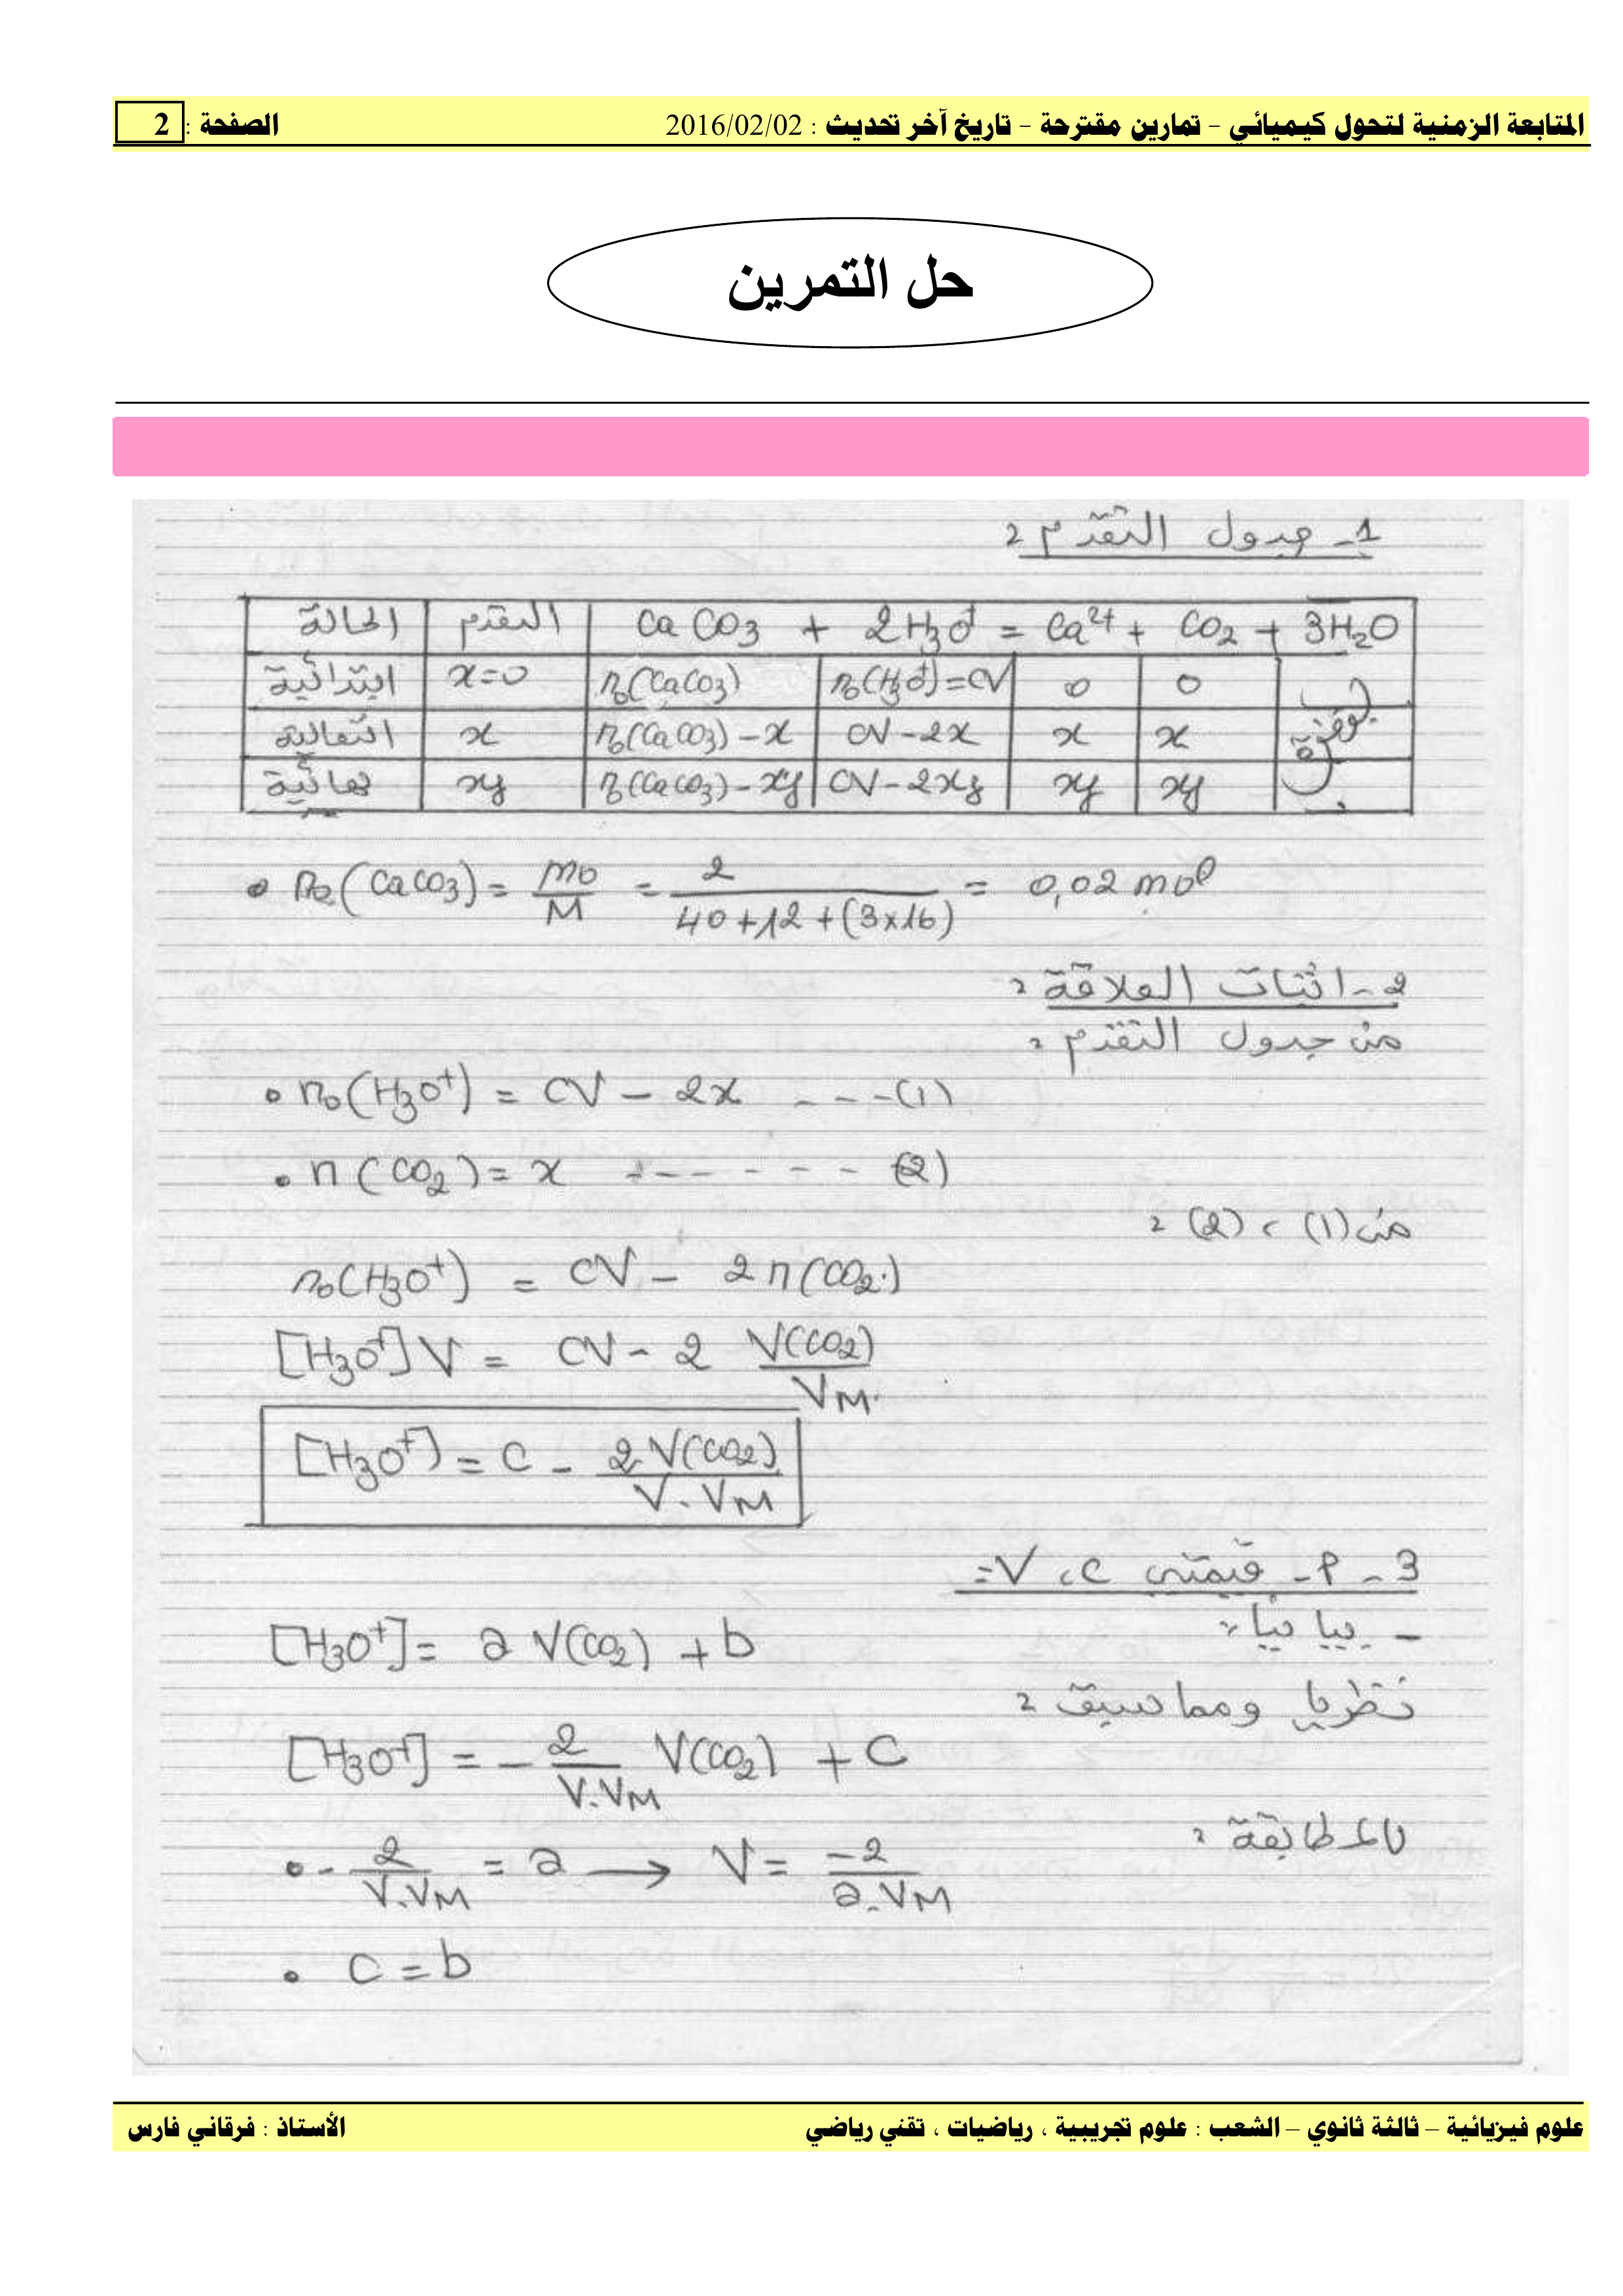 المتابعة الزمنية لتحول كيميائي – تمارين مقترحة – تاريخ آخر تحديث : 2016/02/02 الصفحة : 2
حل التمرين
1- جدول التقدم :
الحالة التقدم CaCO3 + 2H3O+ = Ca2+ + CO2 + 3H2O
ابتدائية x=0 n0(CaCO3) n0(H3O+)=CV 0 0 بوفرة
انتقالية x n0(CaCO3)-x CV-2x x x
نهائية xf n0(CaCO3)-xf CV-2xf xf xf
• n0(CaCO3) = m0/M = 2/(40+12+(3x16)) = 0,02 mol
2- اثبات العلاقة :
من جدول التقدم :
• n0(H3O+) = CV - 2x - - - -(1)
• n(CO2) = x - - - - - - - (2)
من (1) ، (2) :
n0(H3O+) = CV - 2n(CO2)
[H3O+]V = CV - 2 V(CO2)/VM
[H3O+] = C - 2V(CO2)/V.VM
3 - أ - قيمتي V ، C :
- بيانيا :
[H3O+] = a V(CO2) + b
نظريا ومما سبق :
[H3O+] = - 2/V.VM V(CO2) + C
بالمطابقة :
• - 2/V.VM = a → V = -2/a.VM
• C = b
علوم فيزيائية – ثالثة ثانوي – الشعب : علوم تجريبية ، رياضيات ، تقني رياضي الأستاذ : فرقاني فارس